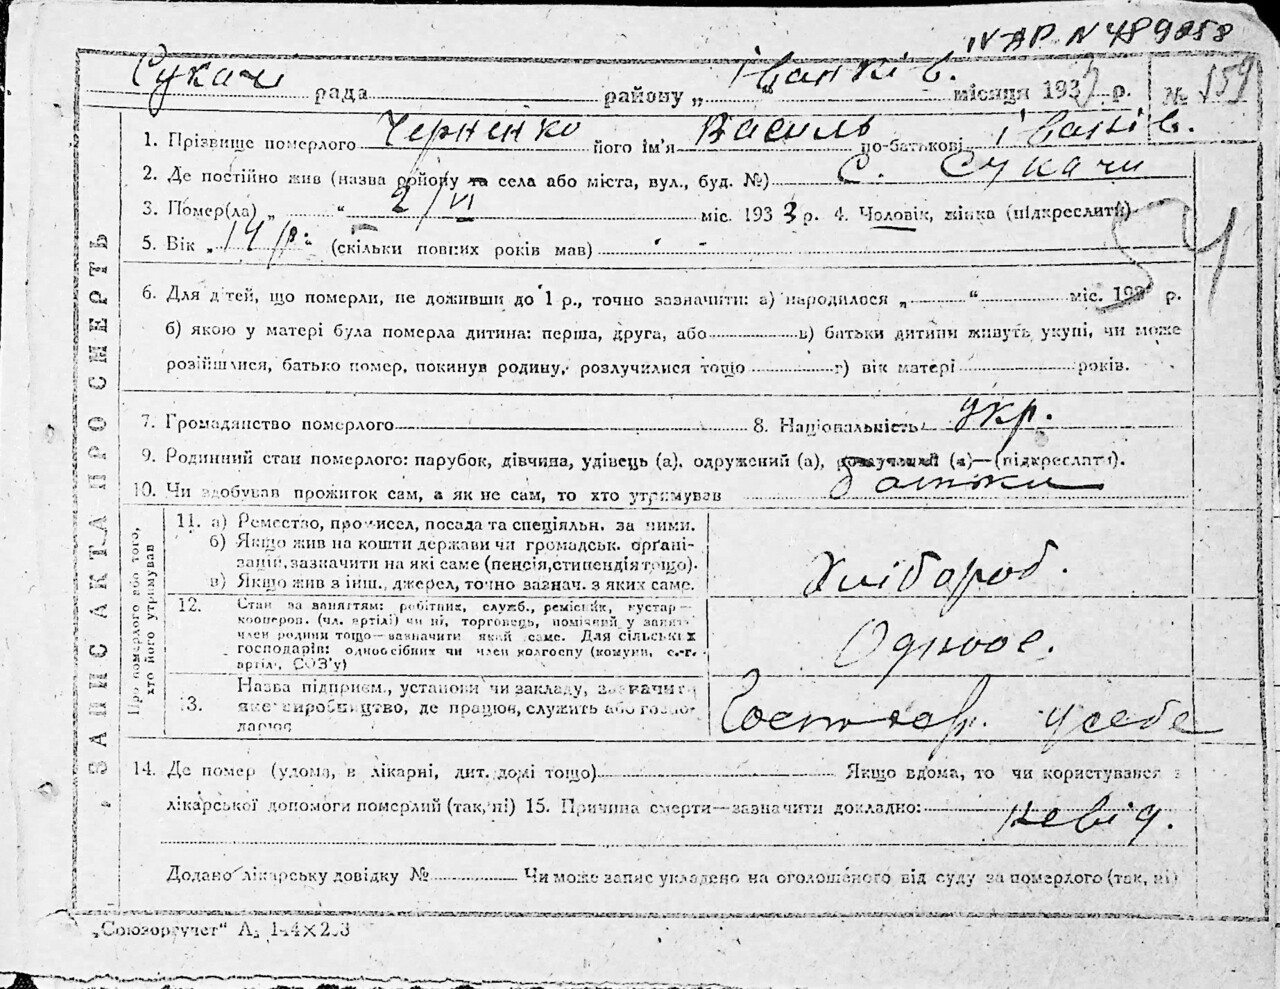 IV АР N 489058
Сукачі рада району „ Іванків. “ місяця 1933 р. № 159
1. Прізвище померлого Черненко його ім'я Василь по-батькові Іванів.
2. Де постійно жив (назва району та села або міста, вул., буд. №) С. Сукачи
3. Помер(ла) „ “ 2/VI міс. 1933 р. 4. Чоловік, жінка (підкреслити)
5. Вік „ 14 р. (скільки повних років мав)
6. Для дітей, що померли, не доживши до 1 р., точно зазначити: а) народилося „ “ міс. 193 р.
б) якою у матері була померла дитина: перша, друга, або в) батьки дитини живуть укупі, чи може
розійшлися, батько помер, покинув родину, розлучилися тощо г) вік матері років.
7. Громадянство померлого 8. Національність укр.
9. Родинний стан померлого: парубок, дівчина, удівець (а), одружений (а), розлучений (а)—(підкреслити).
10. Чи здобував прожиток сам, а як не сам, то хто утримував батьки
ЗАПИС АКТА ПРО СМЕРТЬ
Про померлого або того, хто його утримував
11. а) Ремество, промисел, посада та спеціяльн. за ними.
б) Якщо жив на кошти держави чи громадськ. орґані-
зацій, зазначити на які саме (пенсія, стипендія тощо).
в) Якщо жив з інш. джерел, точно зазнач. з яких саме.
Хлібороб.
12. Стан за заняттям: робітник, служб., ремісник, кустар—
кооперов. (чл. артілі) чи ні, торговець, помічний у занят.
член родини тощо—зазначити який саме. Для сільських
господарів: одноосібник чи член колгоспу (комуни, с.-г.
артіль, СОЗ'у)
Одноос.
13. Назва підприєм., установи чи закладу, зазначити
яке виробництво, де працює, служить або госпо-
дарює
Господар. у себе
14. Де помер (удома, в лікарні, дит. домі тощо) Якщо вдома, то чи користувався з
лікарської допомоги померлий (так, ні) 15. Причина смерти—зазначити докладно: невід.
Додано лікарську довідку № Чи може запис укладено на оголошеного від суду за померлого (так, ні)
„Союзоргучет“ А₅ 144×203